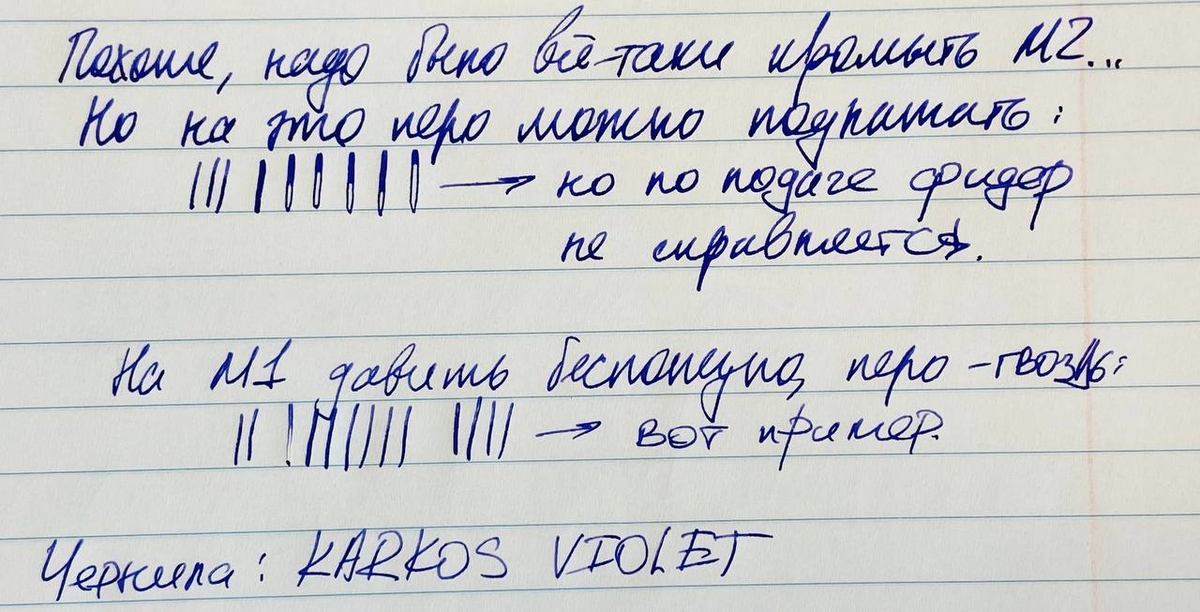 Похоже, надо было всё-таки промыть M2...
Но на это перо можно понажать:
но по подаче фидер
не справляется.
На M1 давить бесполезно, перо-гвоздь:
вот пример.
Чернила: KARKOS VIOLET